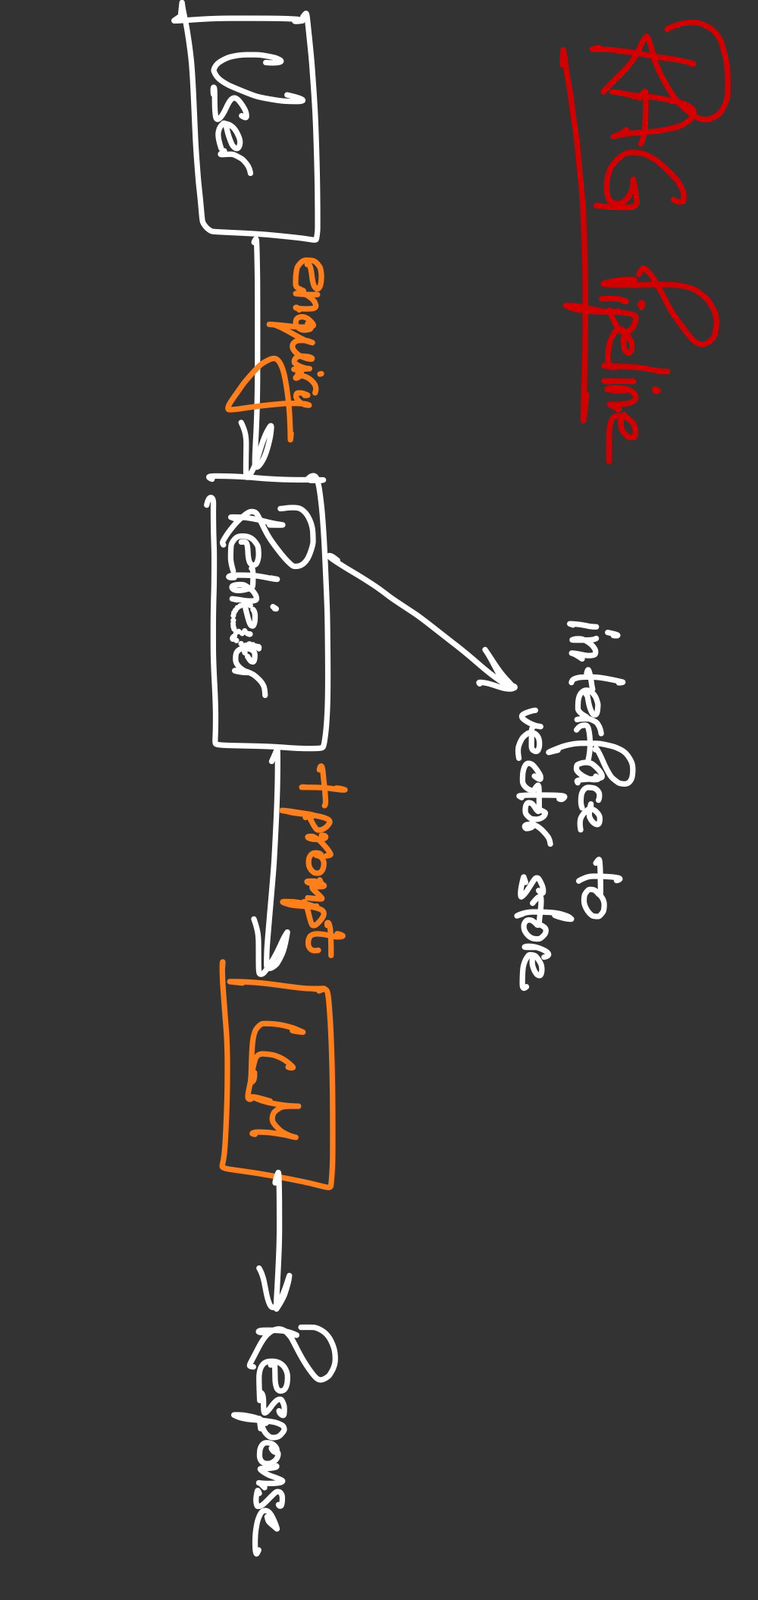 RAG Pipeline
interface to
vector store
User
enquiry
Retriever
+prompt
LLM
Response